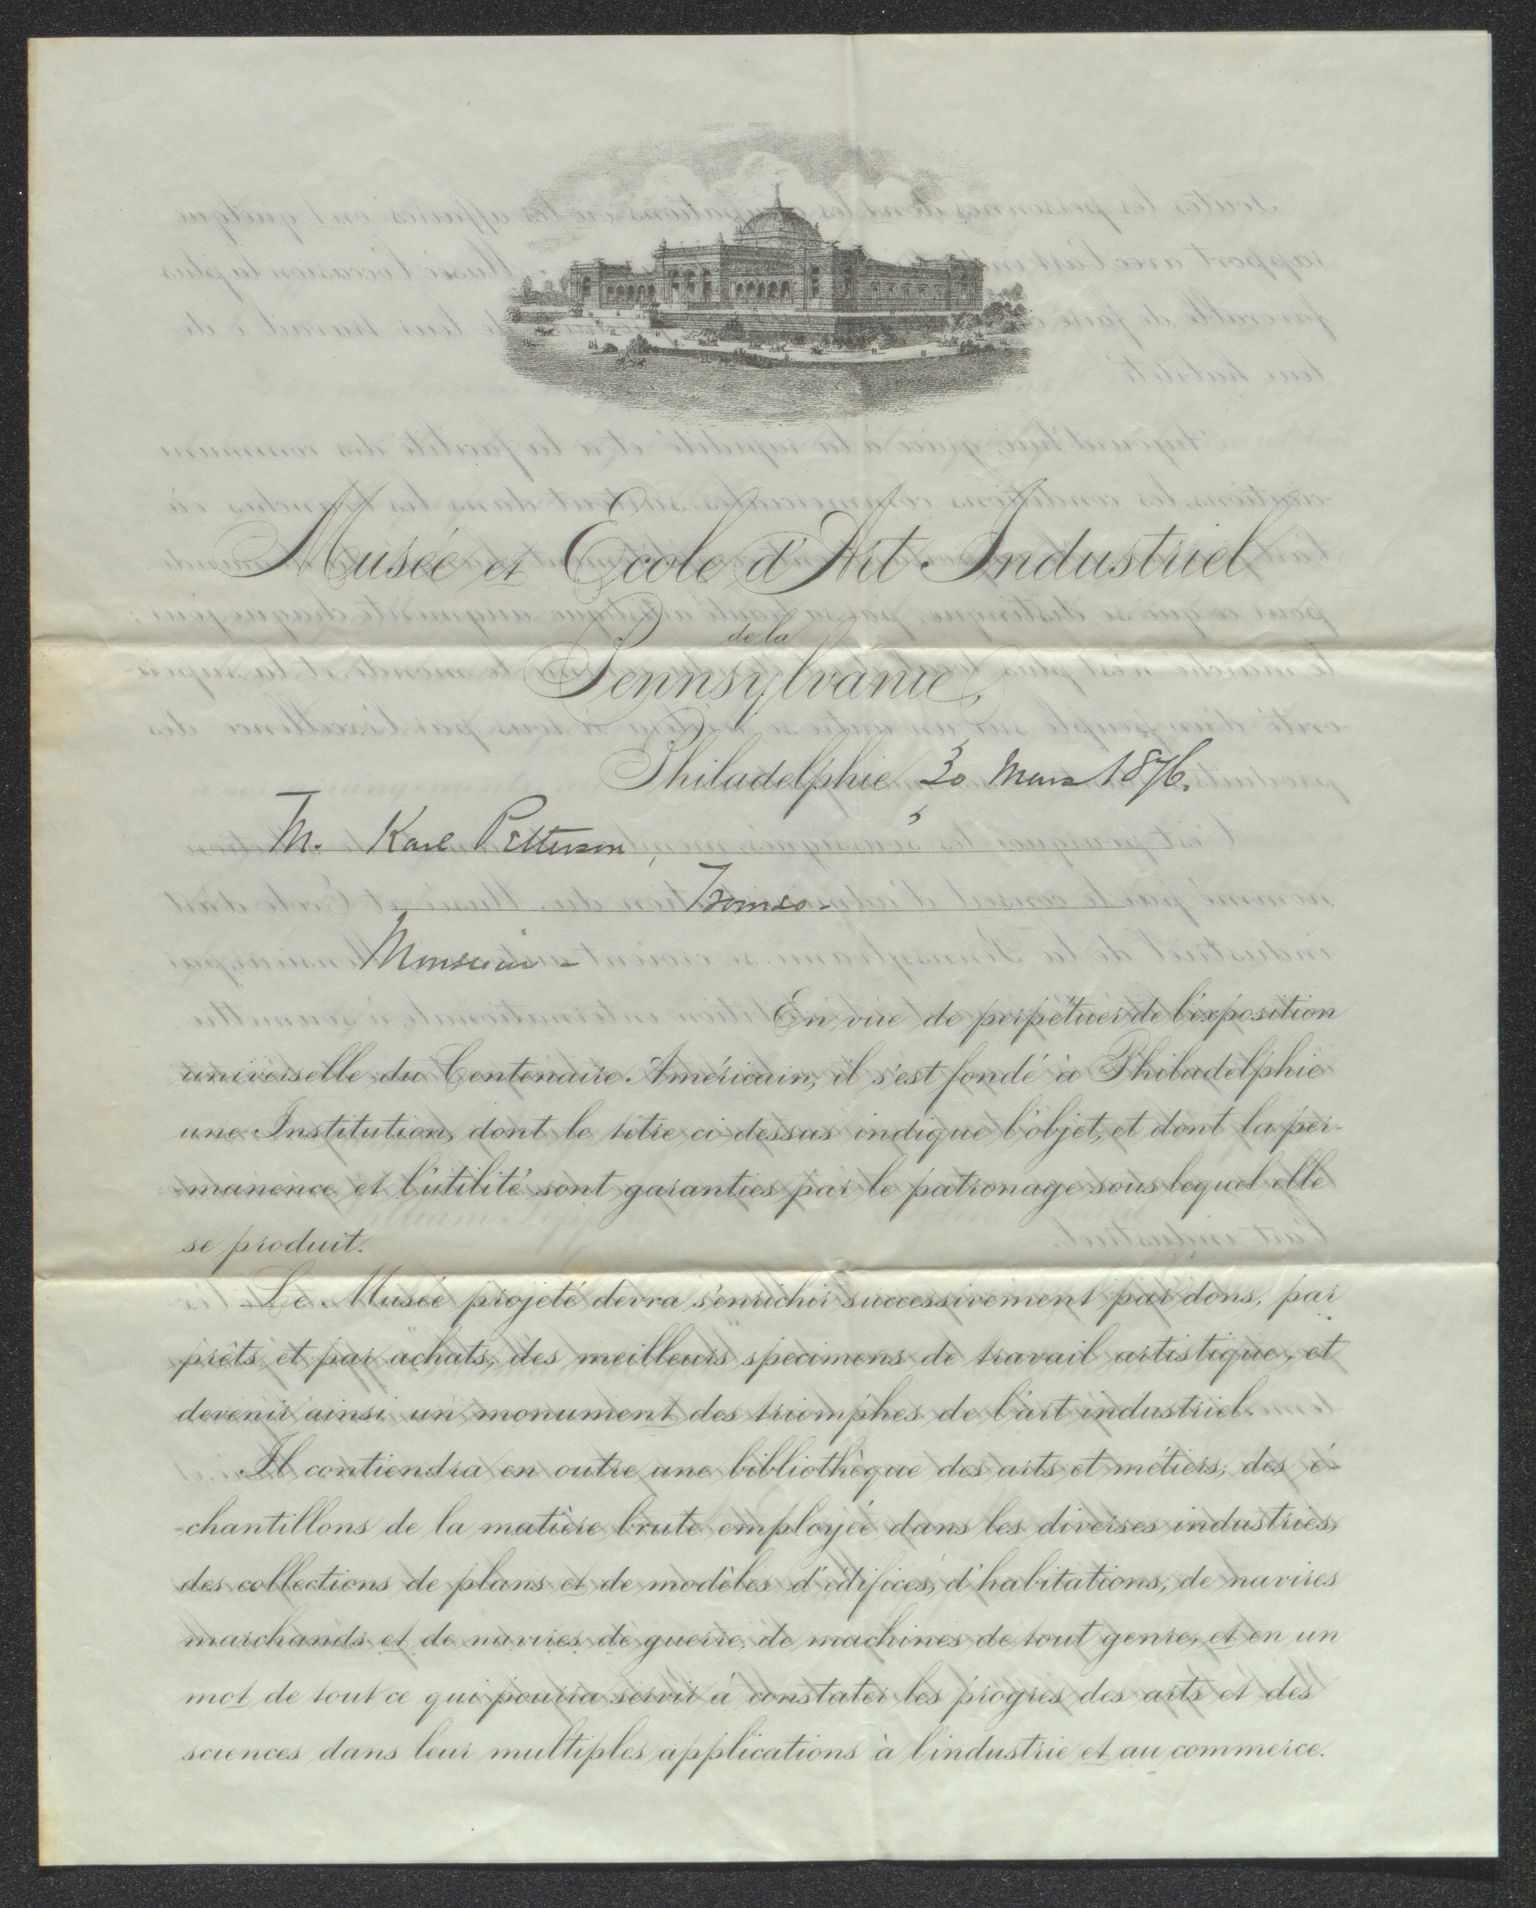 Musée et Ecole d'Art Industriel
de la
Pennsylvanie,
Philadelphie 30 Mars 1876.
M. Karl Petterson,
Tromso-
Monsieur-
En vue de perpétuer de l'éxposition
universelle du Centenaire Américain, il s'est fondé à Philadelphie
une Institution, dont le titre ci-dessus indique l'objet, et dont la per-
-manence et l'utilité sont garanties par le patronage sous lequel elle
se produit.
Le Musée projeté devra s'enrichir successivement par dons, par
prêts et par achats, des meilleurs specimens de travail artistique, et
devenir ainsi un monument des triomphes de l'art industriel.
Il contiendra en outre une bibliothèque des arts et métiers, des é-
-chantillons de la matière brute employée dans les diverses industries,
des collections de plans et de modèles d'édifices, d'habitations, de navires
marchands et de navires de guerre, de machines de tout genre, et en un
mot de tout ce qui pourra servir à constater les progres des arts et des
sciences dans leur multiples applications à l'industrie et au commerce.